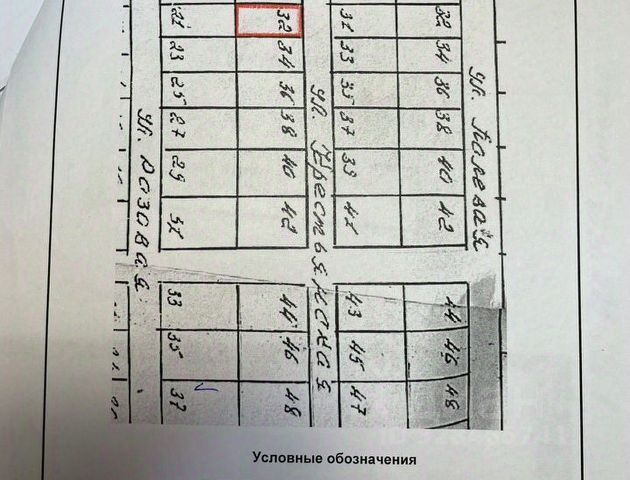 ул. Розовая
21
23
25
27
29
32
34
36
38
40
42
ул. Крестьянская
31
33
35
37
39
41
32
34
36
38
40
42
ул. Полевая
33
35
37
44
46
48
43
45
47
44
46
48
Условные обозначения